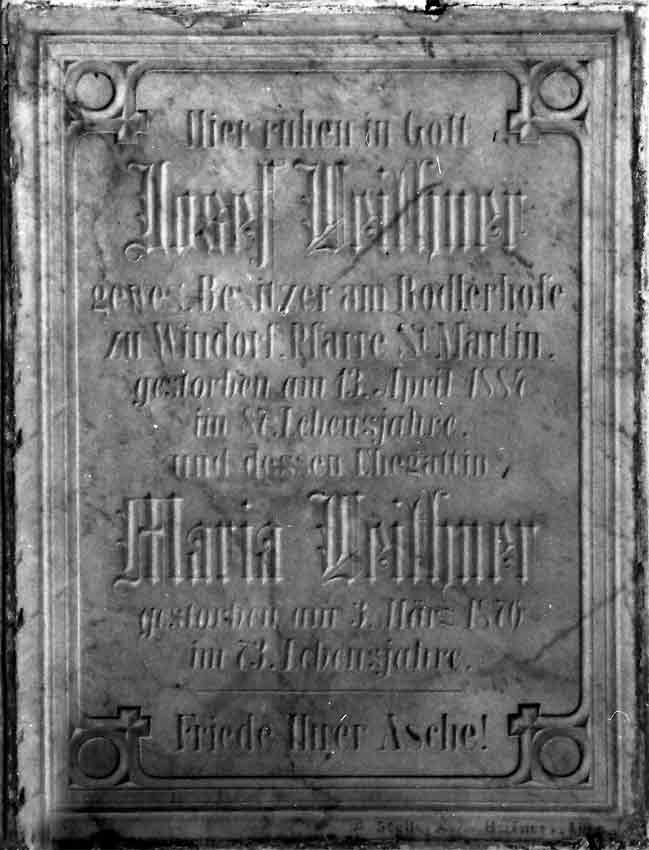 Hier ruhen in Gott
Josef
gewes. Besitzer am Rodlerhofe
zu Windorf, Pfarre St. Martin.
gestorben am 13. April 1887
im 87. Lebensjahre.
und dessen Ehegattin
Maria
gestorben am 3. März 1876
im 73. Lebensjahre.
Friede Ihrer Asche!